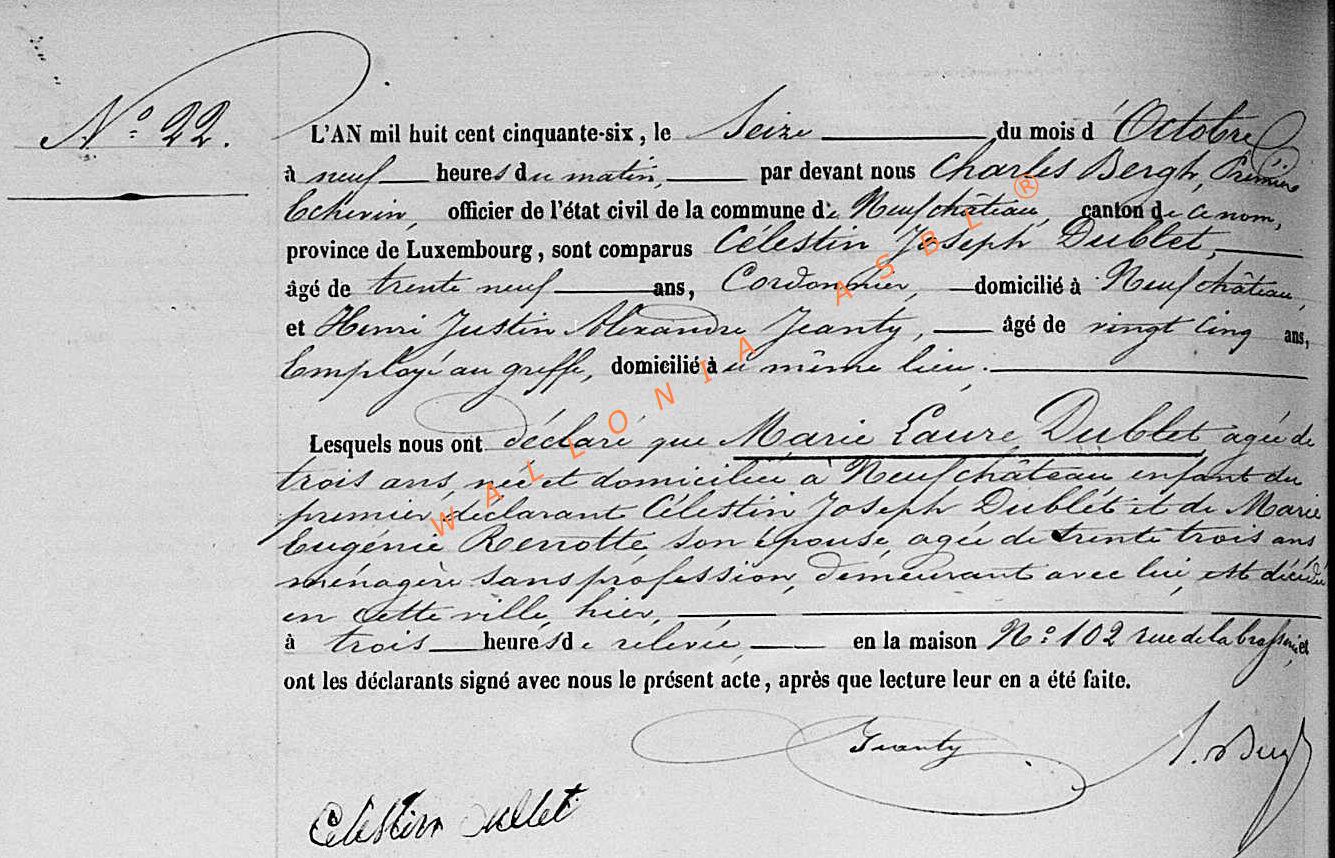 N.° 22.
L'AN mil huit cent cinquante-six, le Seize du mois d'Octobre
à neuf heures du matin, par devant nous Charles Bergh, Premier
Echevin, officier de l'état civil de la commune de Neufchâteau, canton de ce nom,
province de Luxembourg, sont comparus Célestin Joseph Dublet,
âgé de trente neuf ans, Cordonnier, domicilié à Neufchâteau,
et Henri Justin Alexandre Jeanty, âgé de vingt cinq ans,
Employé au greffe, domicilié à u même lieu.
Lesquels nous ont déclaré que Marie Laure Dublet agée de
trois ans, née et domiciliée à Neufchâteau enfant du
premier déclarant Célestin Joseph Dublet et de Marie
Eugénie Renotte, son épouse agée de trente trois ans
ménagère sans profession, demeurant avec lui, est décédée
en cette ville, hier,
à trois heures de relevée, en la maison N.° 102 rue de la brasserie, et
ont les déclarants signé avec nous le présent acte, après que lecture leur en a été faite.
Jeanty
Celestin Dublet
WALLONIA ASBL ®